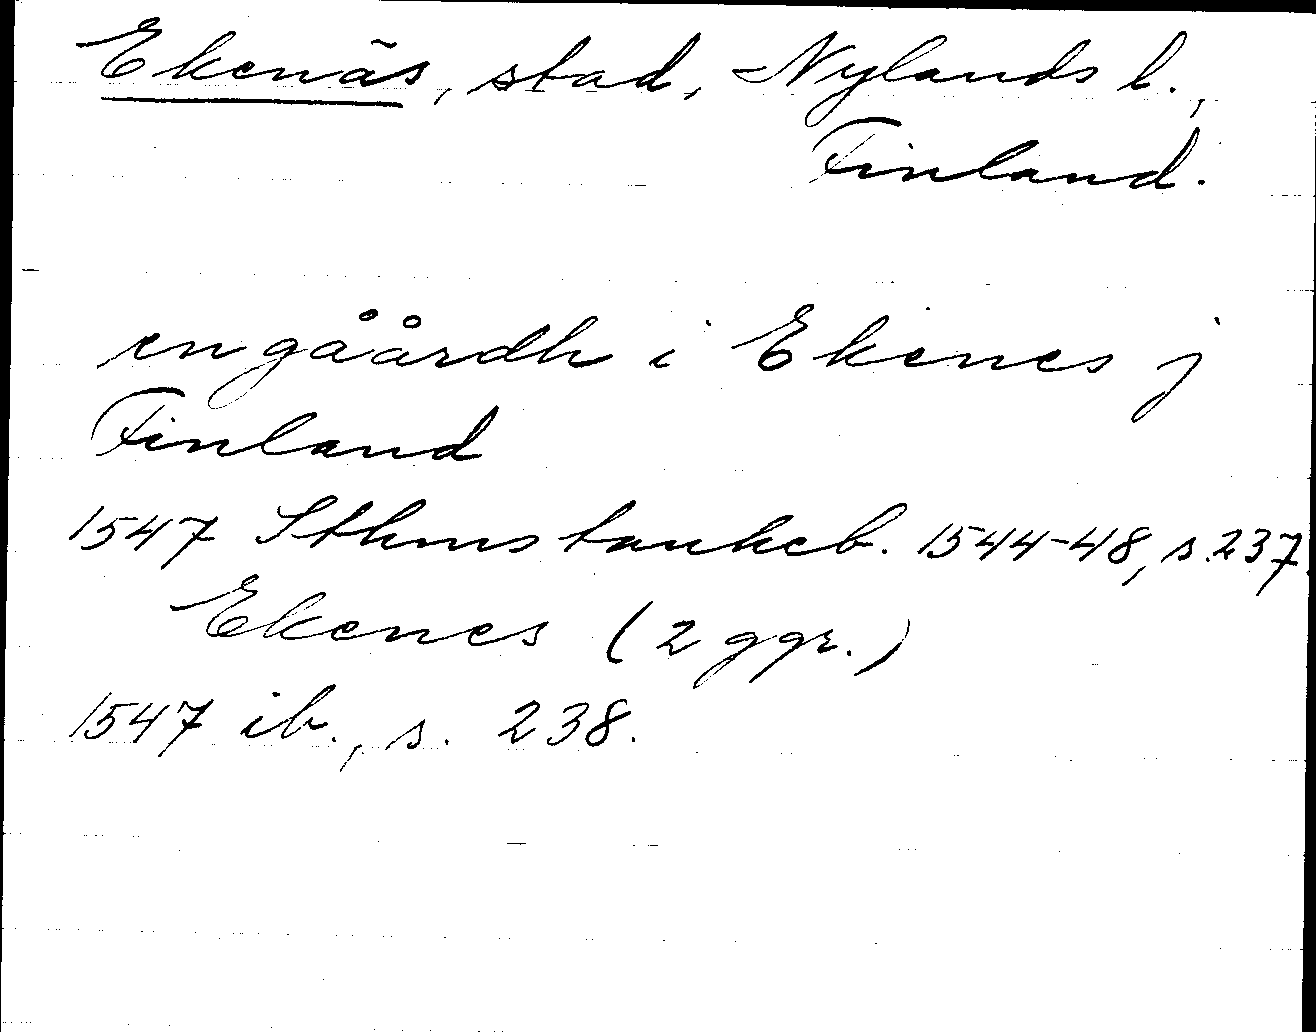 Ekenäs, stad, Nylands l.,
Finland.
en gåårdh i Ekenes j
Finland
1547 Sthms tankeb. 1544-48, s. 237.
Ekenes (2 ggr.)
1547 ib., s. 238.